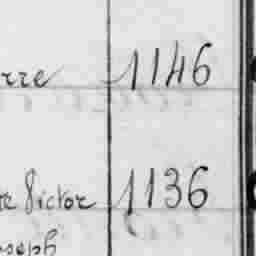 rre 1146
Victor 1136
oseph